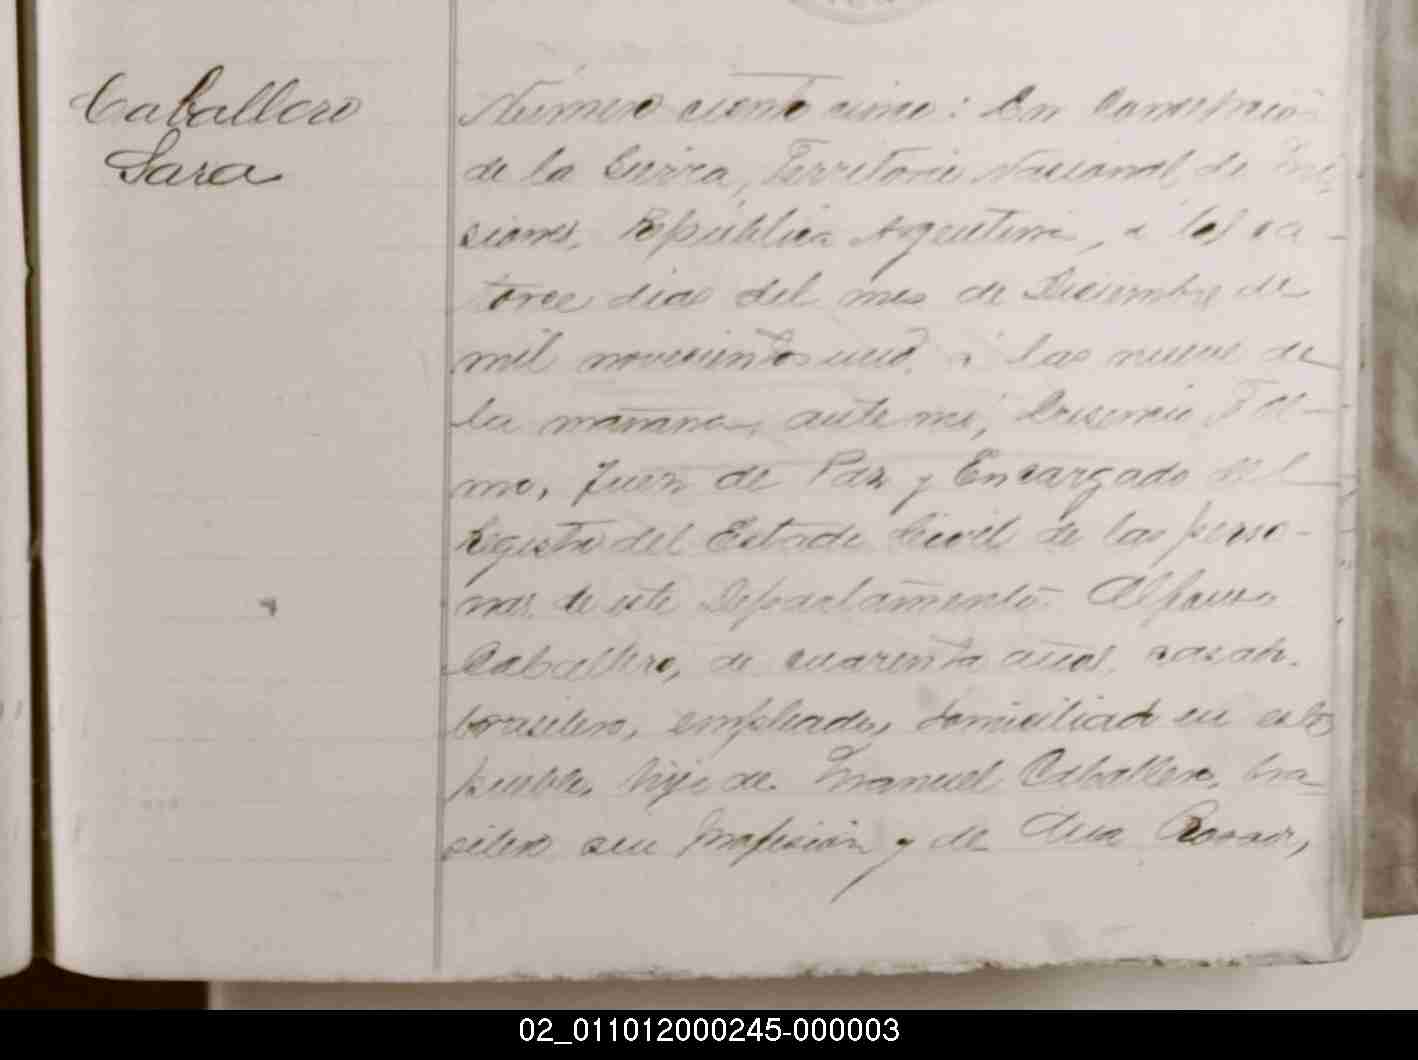 Caballero
Sara
Número ciento cinco: En Concepción
de la Sierra, Territorio Nacional de Mi-
siones, República Argentina, á los ca-
torce dias del mes de Diciembre de
mil novecientos uno, á las nueve de
la mañana, ante mi,
mo, Juez de Paz y Encargado del
Registro del Estado Civil de las perso-
nas de este Departamento Alfonso
Caballero, de cuarenta años, casado,
brasilero, empleado, domiciliado en este
pueblo, hijo de Manuel Caballero, bra-
silero sin profesión y de Ana
02_011012000245-000003